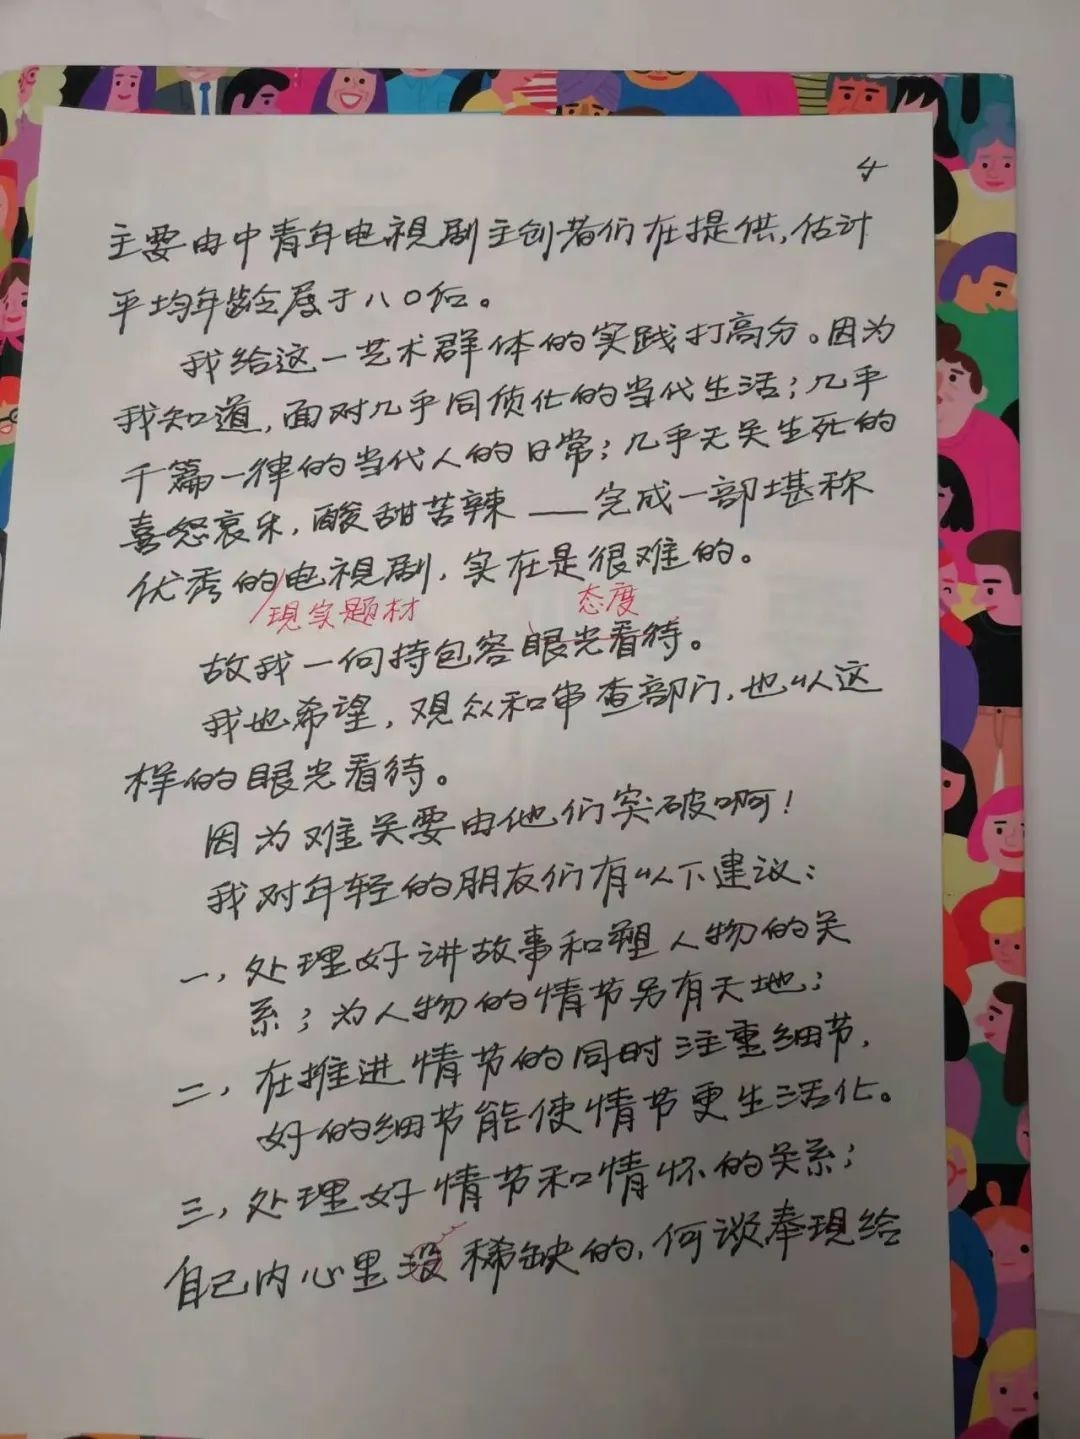 4
主要由中青年电视剧主创者们在提供,估计
平均年龄居于八〇后。
我给这一艺术群体的实践打高分。因为
我知道,面对几乎同质化的当代生活;几乎
千篇一律的当代人的日常;几乎无关生死的
喜怒哀乐,酸甜苦辣——完成一部堪称
优秀的电视剧,实在是很难的。
现实题材
态度
故我一向持包容眼光看待。
我也希望,观众和审查部门,也以这
样的眼光看待。
因为难关要由他们突破啊!
我对年轻的朋友们有以下建议:
一,处理好讲故事和塑人物的关
系;为人物的情节另有天地;
二,在推进情节的同时注重细节,
好的细节能使情节更生活化。
三,处理好情节和情怀的关系;
自己内心里没稀缺的,何谈奉现给